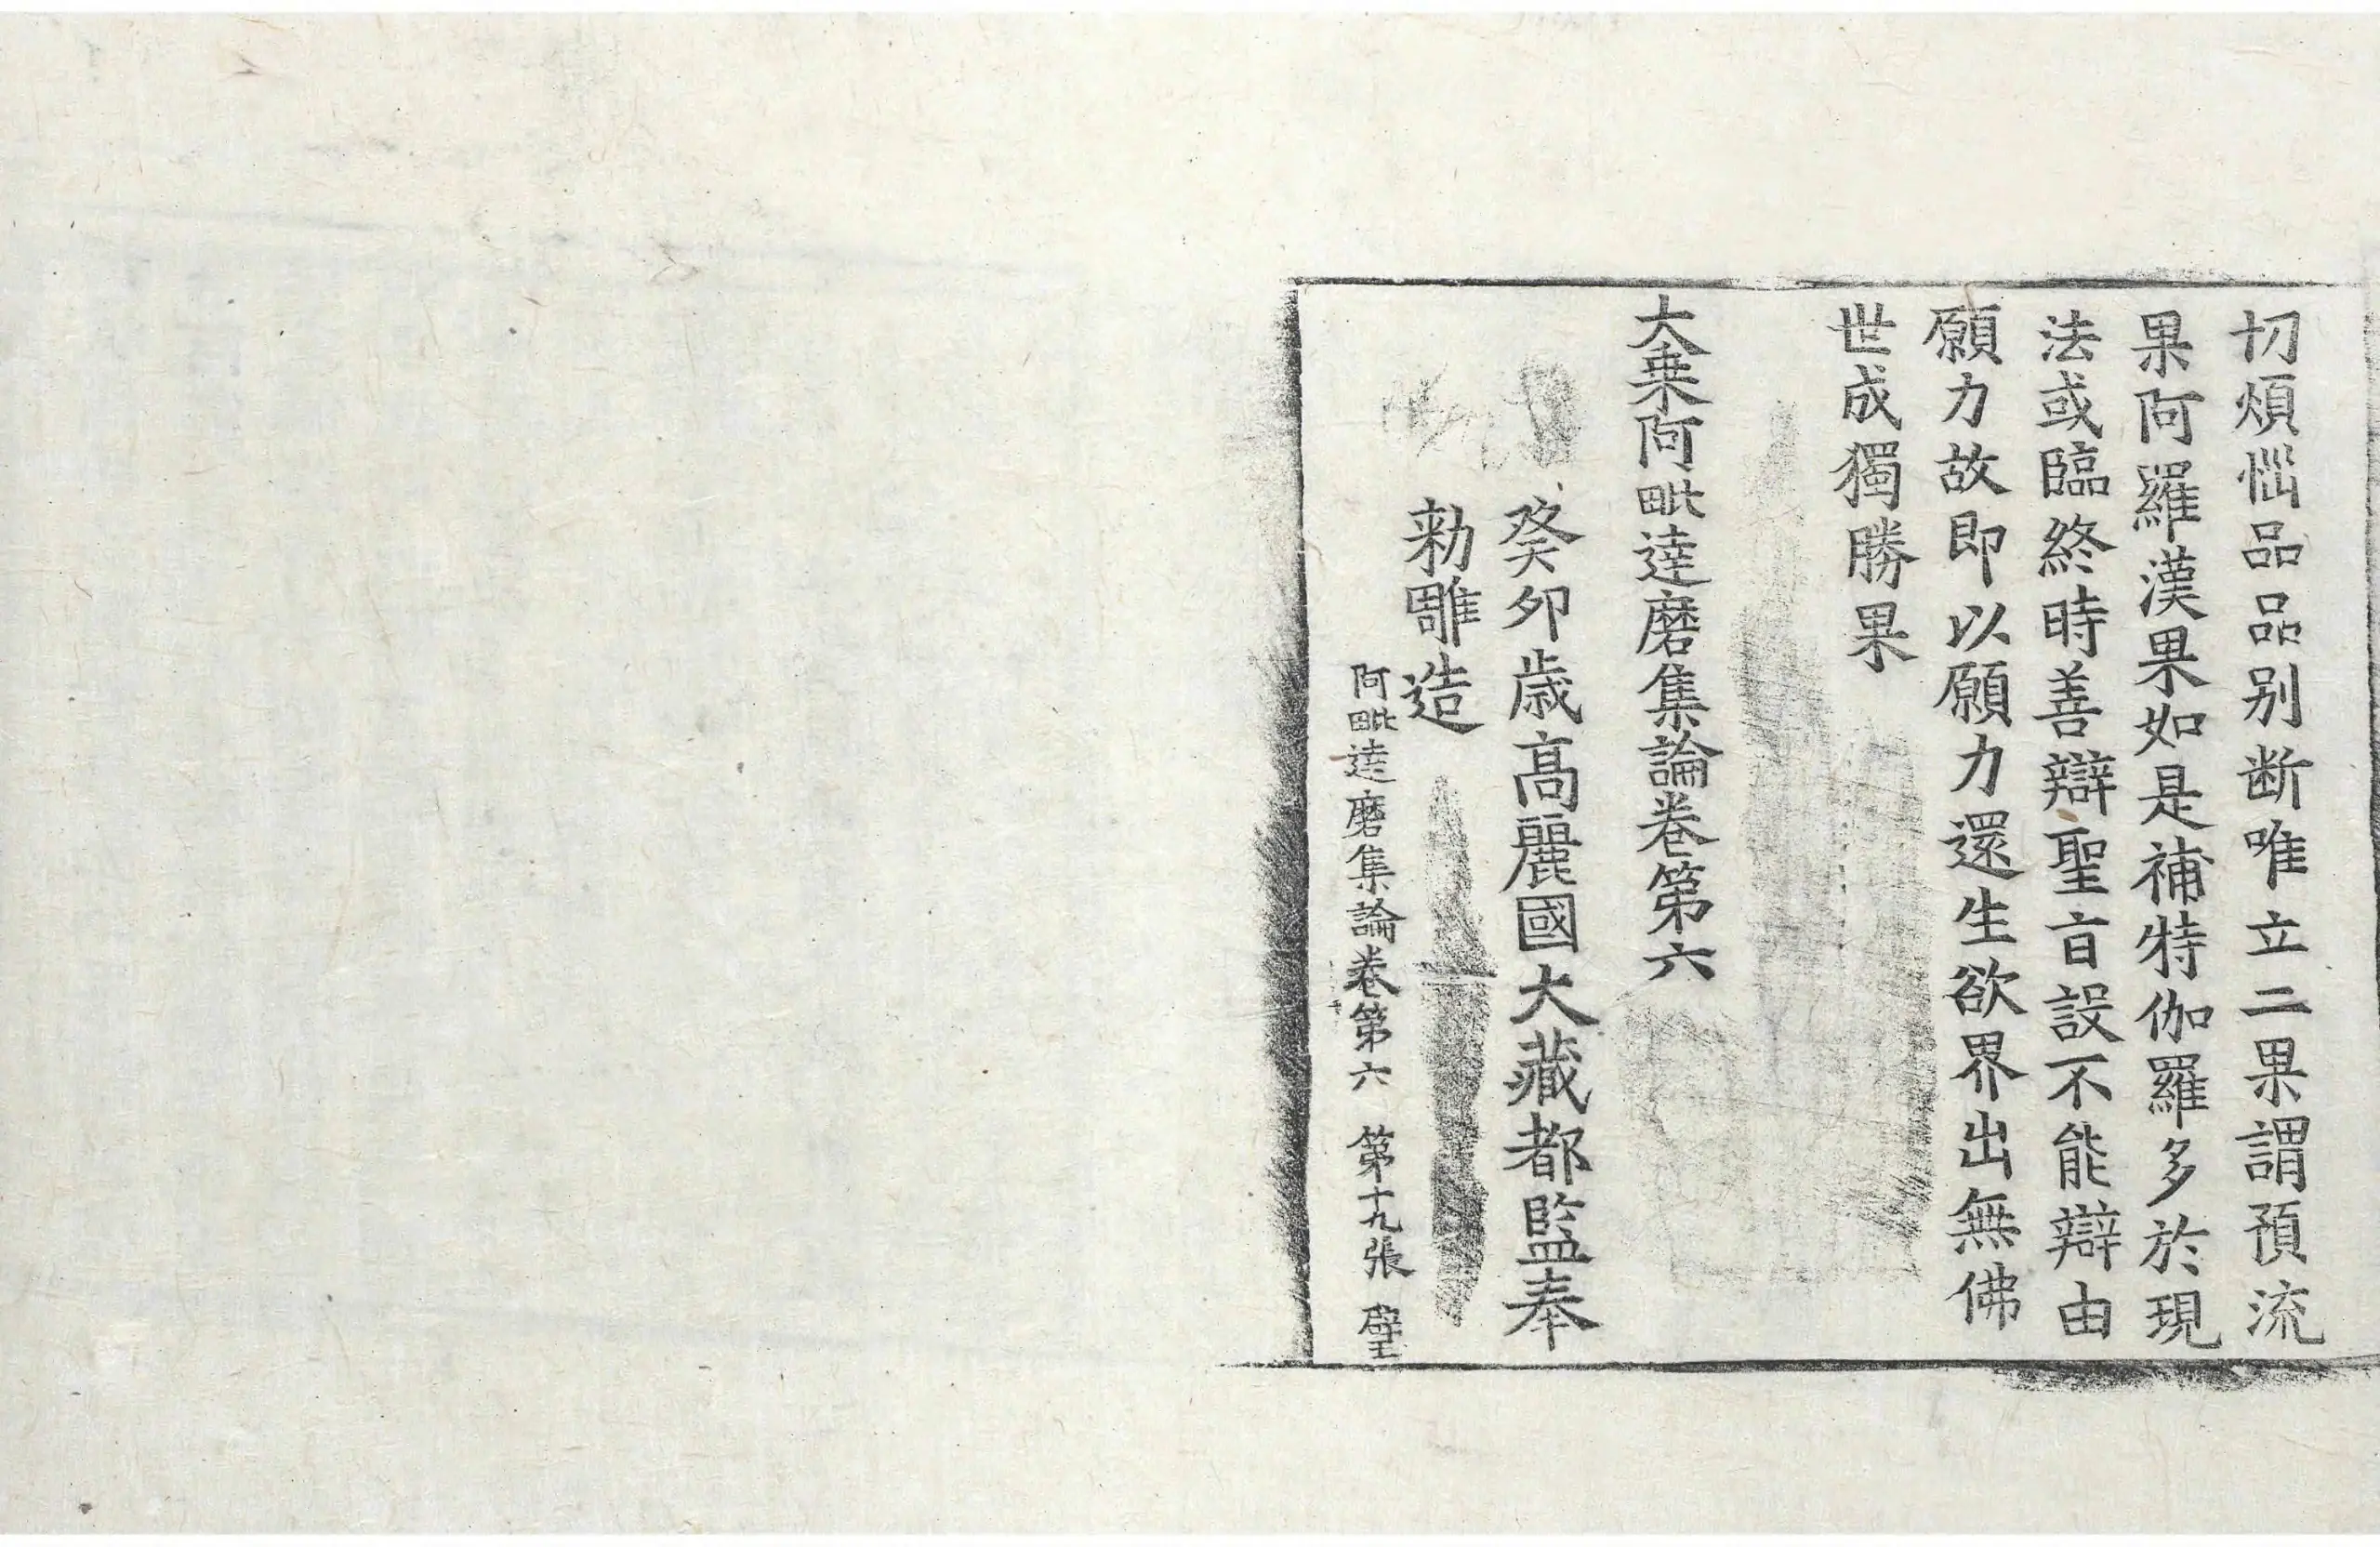 切煩惱品品別断唯立二果謂預流
果阿羅漢果如是補特伽羅多於現
法或臨終時善辯聖旨設不能辯由
願力故即以願力還生欲界出無佛
世成獨勝果
大乗阿毗達磨集論卷第六
癸卯歳高麗國大藏都監奉
勑雕造
阿毗達磨集論卷第六 第十九張 璧